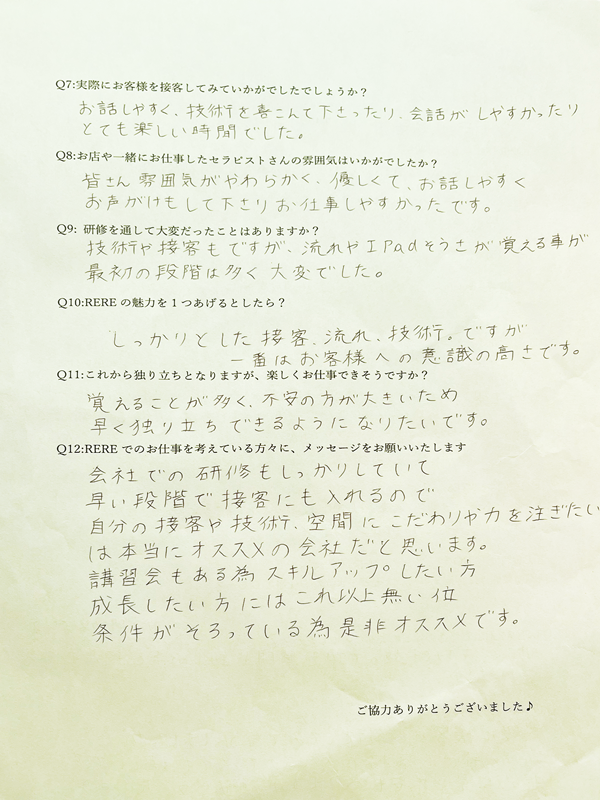 Q7:実際にお客様を接客してみていかがでしたでしょうか?
お話しやすく、技術を喜こんで下さったり、会話がしやすかったり
とても楽しい時間でした。
Q8:お店や一緒にお仕事したセラピストさんの雰囲気はいかがでしたか?
皆さん雰囲気がやわらかく、優しくて、お話しやすく
お声がけもして下さりお仕事しやすかったです。
Q9: 研修を通して大変だったことはありますか?
技術や接客もですが、流れやIPadそうさが覚える事が
最初の段階は多く大変でした。
Q10:REREの魅力を1つあげるとしたら?
しっかりとした接客、流れ、技術。ですが
一番はお客様への意識の高さです。
Q11:これから独り立ちとなりますが、楽しくお仕事できそうですか?
覚えることが多く、不安の方が大きいため
早く独り立ちできるようになりたいです。
Q12:REREでのお仕事を考えている方々に、メッセージをお願いいたします
会社での研修もしっかりしていて
早い段階で接客にも入れるので
自分の接客や技術、空間にこだわりや力を注ぎたい
は本当にオススメの会社だと思います。
講習会もある為スキルアップしたい方
成長したい方にはこれ以上無い位
条件がそろっている為是非オススメです。
ご協力ありがとうございました♪